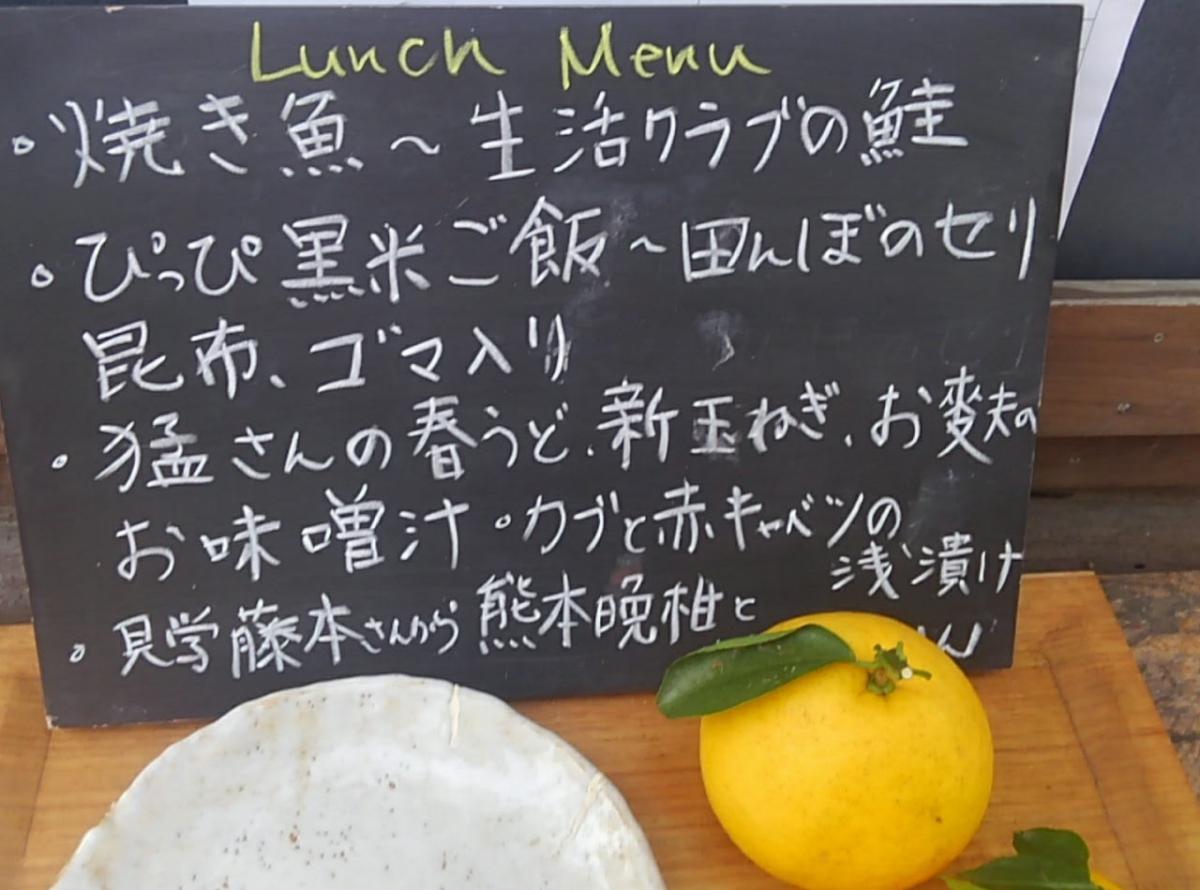 Lunch Menu
・焼き魚～生活クラブの鮭
・ぴっぴ黒米ご飯～田んぼのセリ
昆布、ゴマ入り
・猛さんの春うど、新玉ねぎ、お麩の
お味噌汁・カブと赤キャベツの
浅漬け
・見学藤本さんから熊本晩柑と
ん